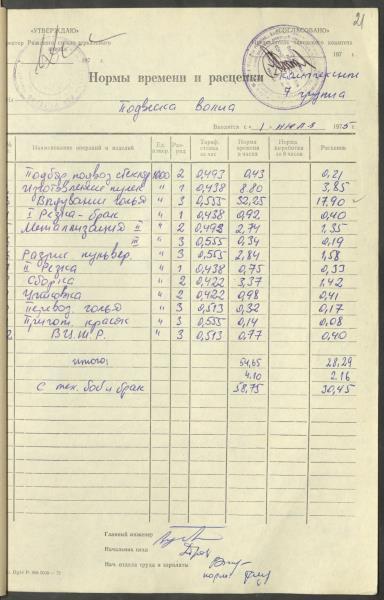 21
«УТВЕРЖДАЮ» «СОГЛАСОВАНО»
197 г. 197 г.
Нормы времени и расценки
7 группа
На Подвеска волна
Вводятся с „1" июля 1975 г.
Наименование операций и изделий Ед. измер. Раз-ряд Тариф. ставка за час Норма времени в часах Норма выработки за 8 часов Расценка
Подбор, подвоз стекла 1000 2 0,493 0,43 0,21
Изготовление пулек " 1 0,438 8.80 3,85
Выдувание голья " 3 0,555 32,25 17,90
I Резка - брак " 1 0,438 0,92 0,40
Металлизация II " 2 0,493 2,74 1,35
III " 3 0,555 0,34 0,19
Распис. пульвер. " 3 0,555 2,84 1,58
II Резка " 1 0,438 0,75 0,33
Сборка " 2 0,422 3,37 1,42
Упаковка " 2 0,422 0,98 0,41
перевоз. голья " 3 0,513 0,32 0,17
Пригот. красок " 3 0,555 0,14 0,08
" 3 0,513 0,77 0,40
Итого: 54,65 28,29
4.10 2.16
С тех. боб и брак 58,75 30,45
Главный инженер
Начальник цеха
Нач. отдела труда и зарплаты
норм.